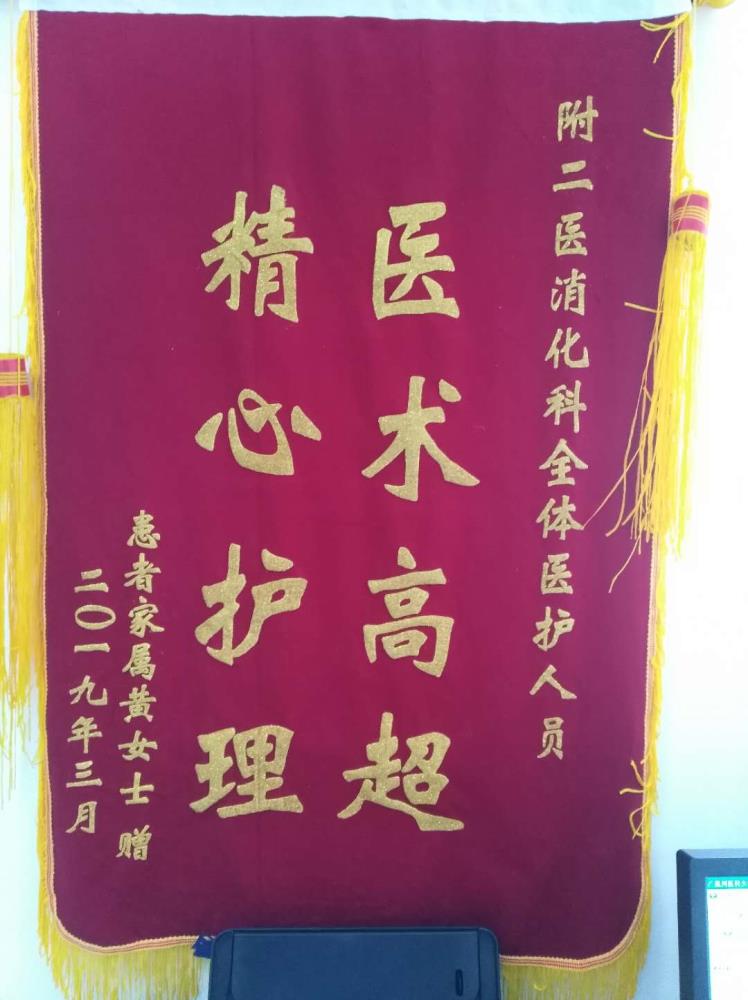 附二医消化科全体医护人员
医术高超
精心护理
患者家属黄女士 赠
二〇一九年三月